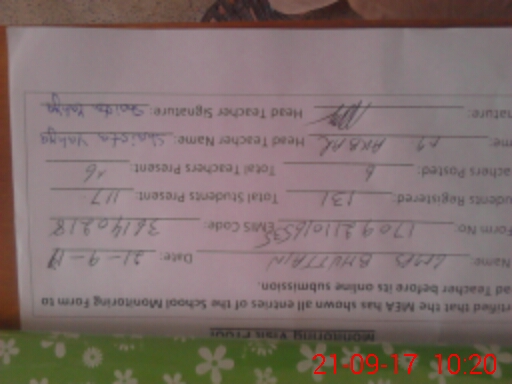 Monitoring Visit Proof
rtified that the MEA has shown all entries of the School Monitoring Form to
ead Teacher before its online submission.
Name: GMPS BHUTTAIN Date: 21-9-17
Form No: EMIS Code: 38140218
udents Registered: 131 Total Students Present: 117
achers Posted: 6 Total Teachers Present: 06
me: AKBAR Head Teacher Name: Shaista Yahya
nature: Head Teacher Signature: Shaista Yahya
21-09-17 10:20